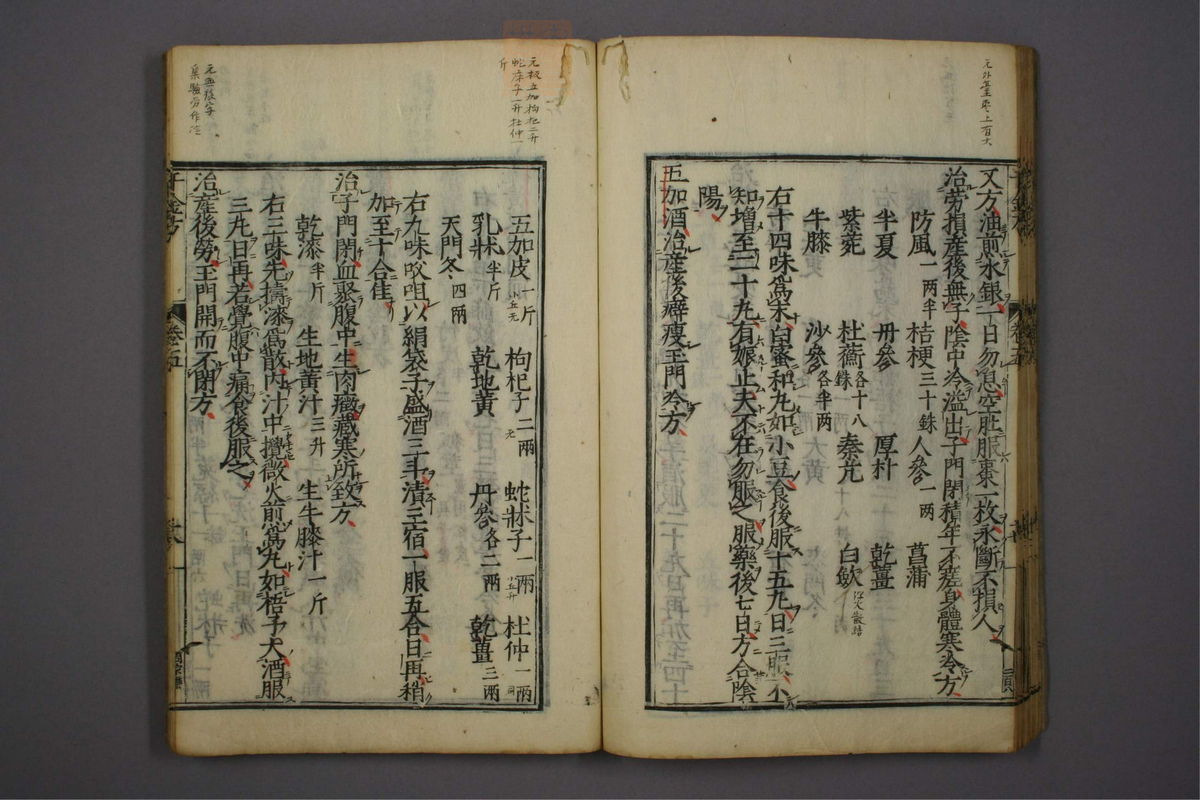 又方油煎水銀一日勿息空肚服棗一枚永斷不損人
治勞損產後無子陰中冷溢出子門閉積年不差身體寒冷方
防風一兩半 桔梗三十銖 人參一兩 菖蒲
半夏 丹參 厚朴 乾薑
紫菀 杜蘅各十八銖 秦艽 白斂
牛膝 沙參各半兩
右十四味爲末白蜜和丸如小豆食後服十五丸日三服不
知增至二十丸有娠止夫不在勿服之服藥後七日方合陰
陽
五加酒治產後癖瘦玉門冷方
五加皮一斤 枸杞子二兩 蛇牀子一兩 杜仲一兩
乳牀半斤 乾地黃 丹參各二兩 乾薑三兩
天門冬四兩
右九味㕮咀以絹袋子盛酒三斗漬三宿一服五合日再稍
加至十合佳
治子門閉血聚腹中生肉癥藏寒所致方
乾漆半斤 生地黃汁三升 生牛膝汁一斤
右三味先擣漆爲散內汁中攪微火煎爲丸如梧子大酒服
三丸日再若覺腹中痛食後服之
治產後勞玉門開而不閉方
千金方
卷五
元板五加枸杞二升
蛇床子一升杜仲一
斤